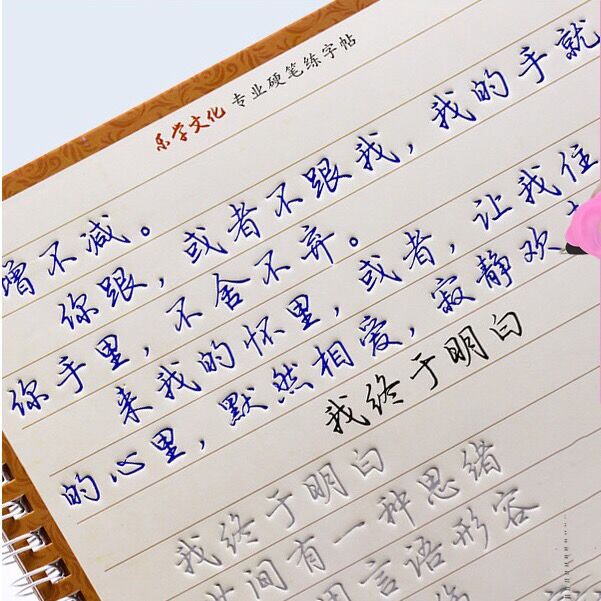 乐学文化 专业硬笔练字帖
增不减。
你跟，或者不跟我，我的手就
你手里，不舍不弃。
来我的怀里，或者，让我住
的心里，默然相爱，寂静欢
我终于明白
我终于明白
世间有一种思绪
用言语形容